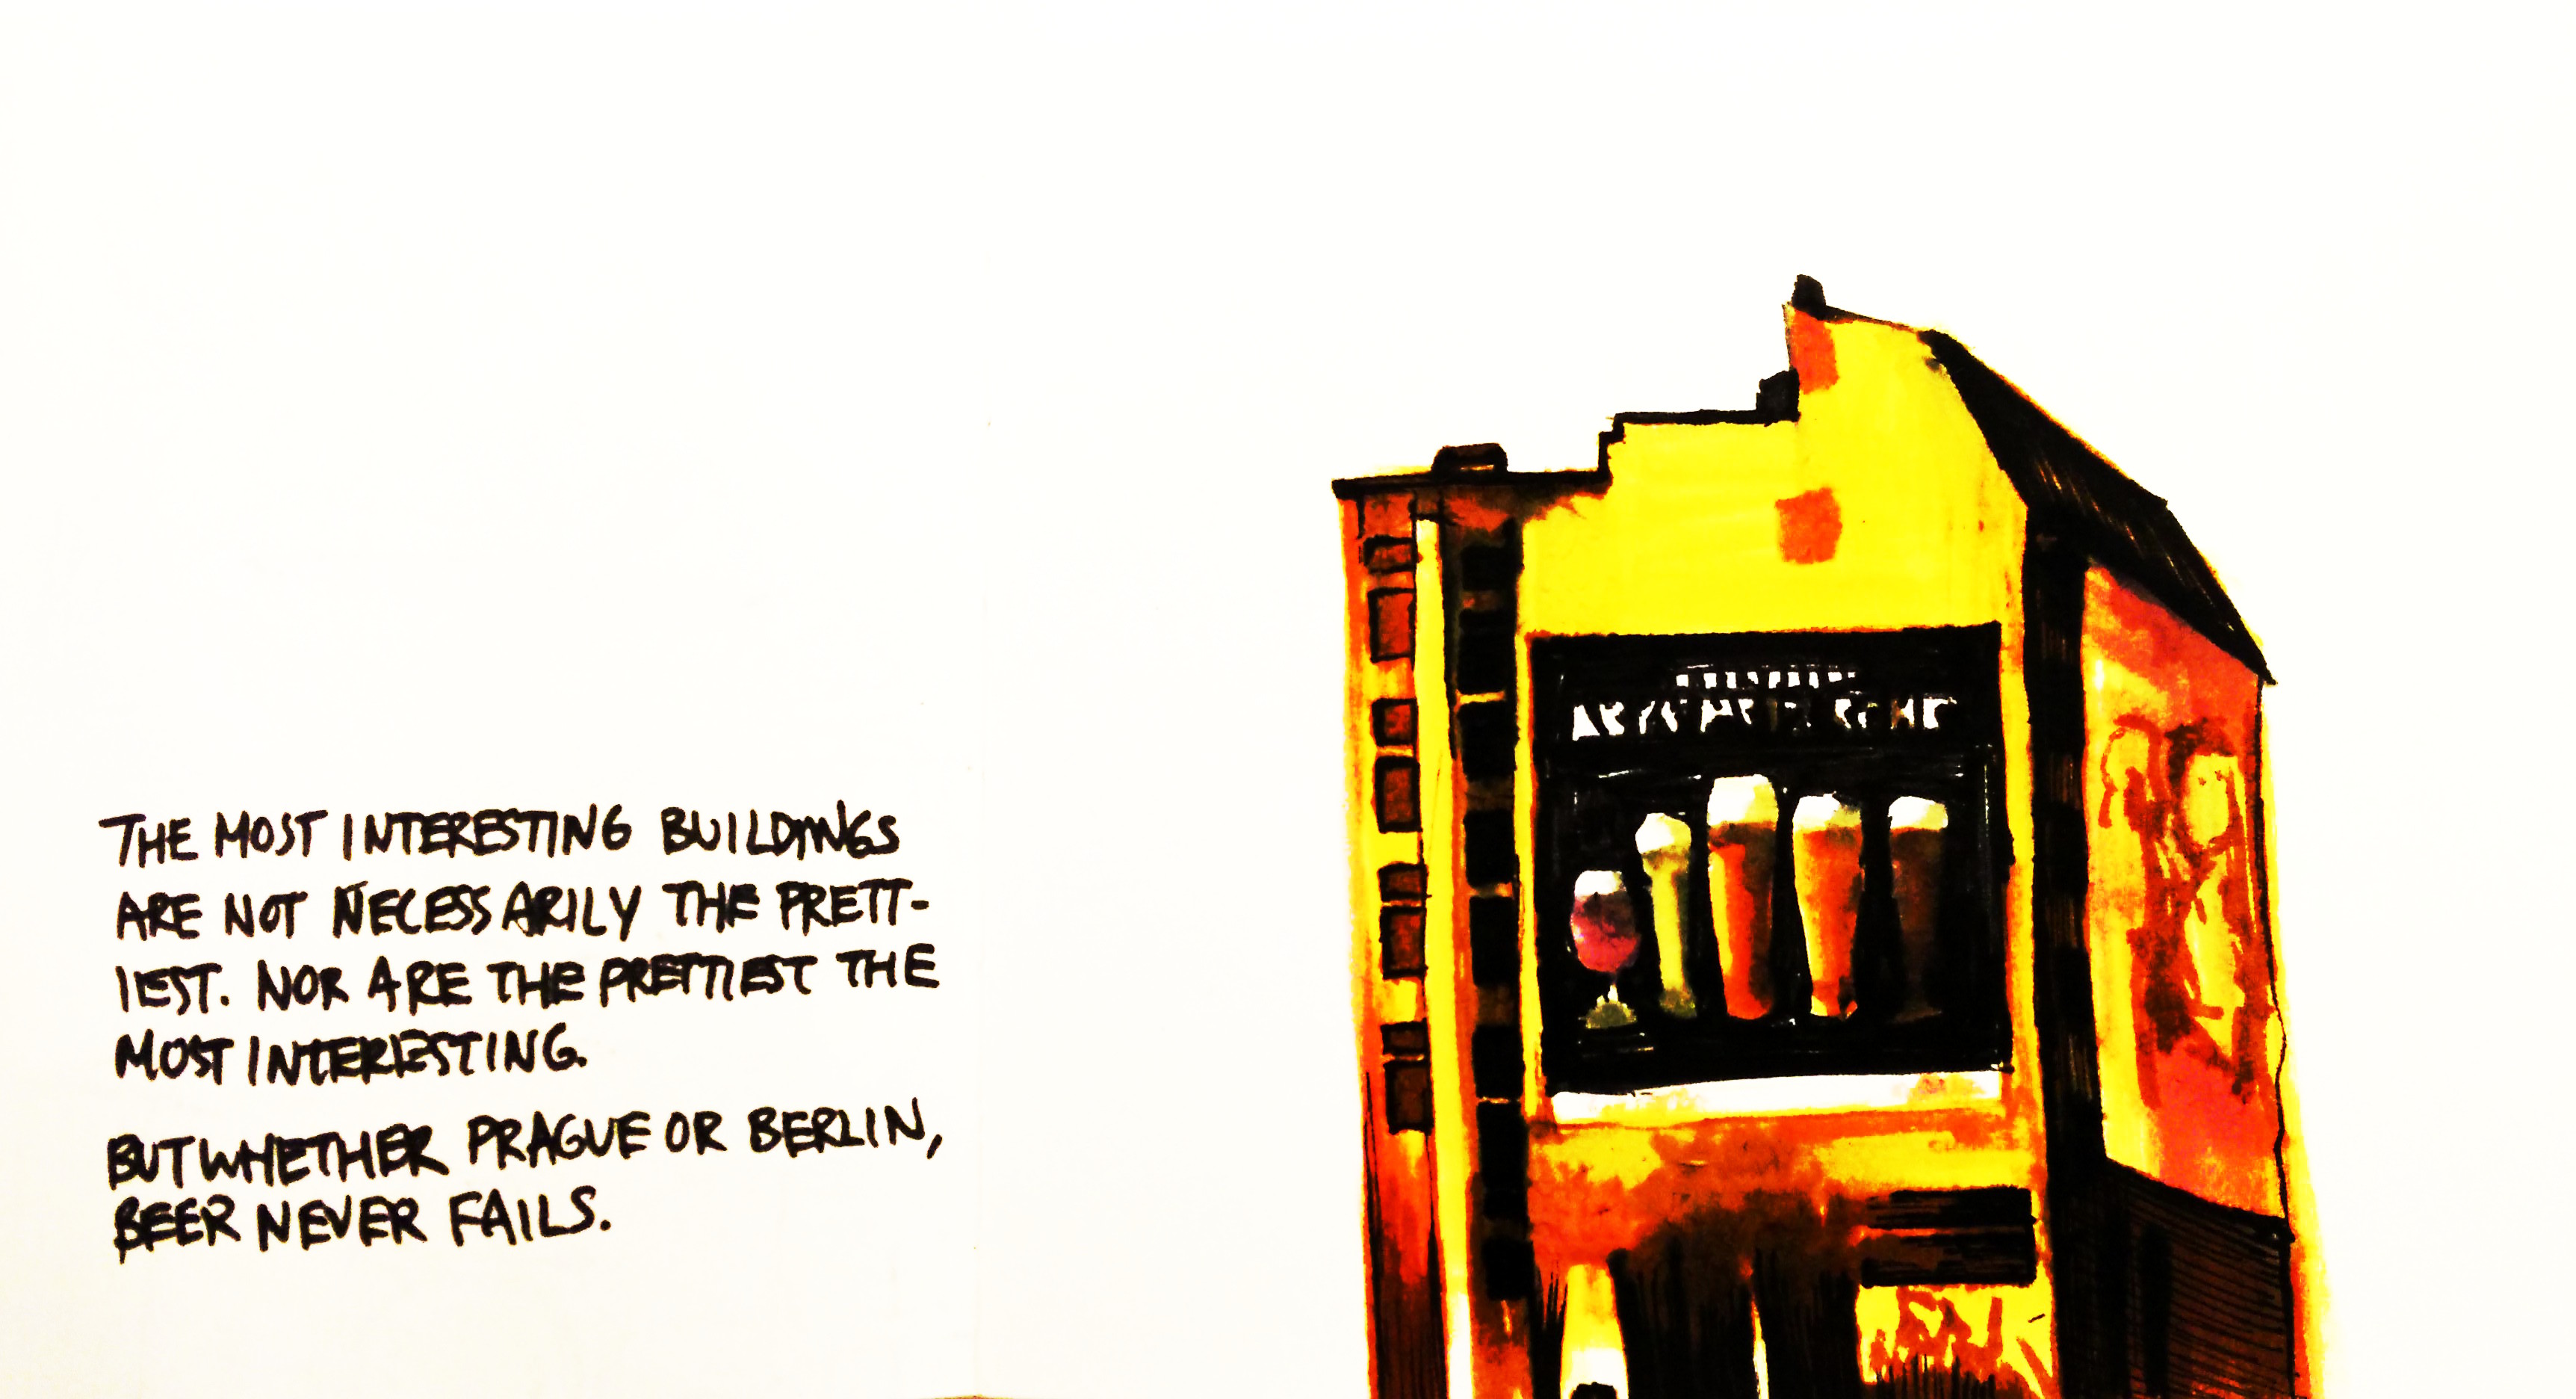 THE MOST INTERESTING BUILDINGS
ARE NOT NECESSARILY THE PRETT-
IEST. NOR ARE THE PRETTIEST THE
MOST INTERESTING.
BUT WHETHER PRAGUE OR BERLIN,
BEER NEVER FAILS.